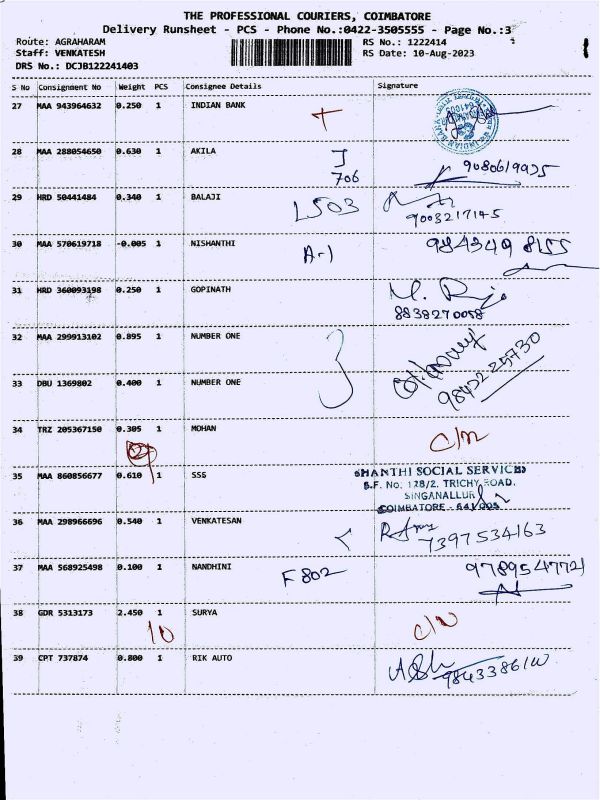 THE PROFESSIONAL COURIERS, COIMBATORE
Delivery Runsheet - PCS - Phone No.:0422-3505555 - Page No.:3
Route: AGRAHARAM RS No.: 1222414
Staff: VENKATESH RS Date: 10-Aug-2023
DRS No.: DCJB122241403
S No Consignment No Weight PCS Consignee Details Signature
27 MAA 943964632 0.250 1 INDIAN BANK
28 MAA 288054650 0.630 1 AKILA J 9080619925
706
29 HRD 50441484 0.340 1 BALAJI L503 9003217145
30 MAA 570619718 -0.005 1 NISHANTHI A-1 984349 8155
31 HRD 360093198 0.250 1 GOPINATH
8838270058
32 MAA 299913102 0.895 1 NUMBER ONE
33 DBU 1369802 0.400 1 NUMBER ONE 98422 25730
34 TRZ 205367150 0.305 1 MOHAN C/n
35 MAA 860856677 0.610 1 SSS SHANTHI SOCIAL SERVICES
S.F. No. 128/2, TRICHY ROAD,
SINGANALLUR
COIMBATORE - 641 005
36 MAA 298966696 0.540 1 VENKATESAN 7397534163
37 MAA 568925498 0.100 1 NANDHINI F 802 9789547721
38 GDR 5313173 2.450 1 SURYA C/N
10
39 CPT 737874 0.800 1 RIK AUTO